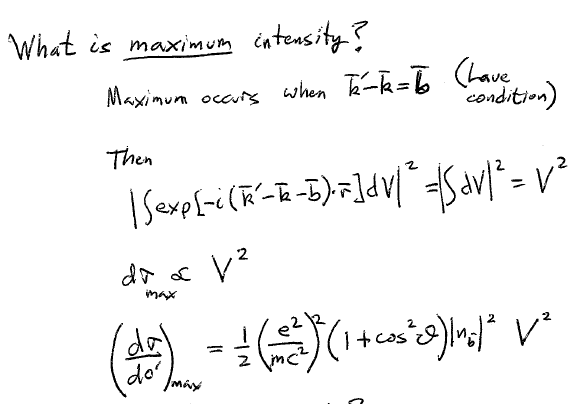 What is maximum intensity?
Maximum occurs when k̄′-k̄=b̄ (Laue condition)
Then
|∫exp[-i(k̄′-k̄-b̄)·r̄]dV|² =|∫dV|² = V²
dσmax ∝ V²
(dσ/do′)max = 1/2 (e²/mc²)² (1+cos²ϑ)|n_b̄|² V²